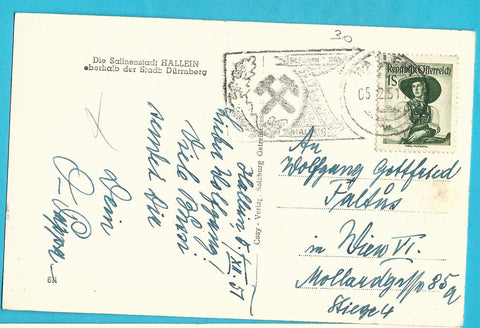 Die Salinenstadt HALLEIN
oberhalb der Stadt: Dürrnberg
30
HALLEIN
Republik Österreich
1S
Cosy-Verlag, Salzburg
Hallein, 5/XII. 51
Lieber Wolfgang!
Viele Grüsse
sendet Dir
Dein
An
Wolfgang Gottfried
Faltus
in Wien VI.
Mollardgasse 85a
Stiege 4